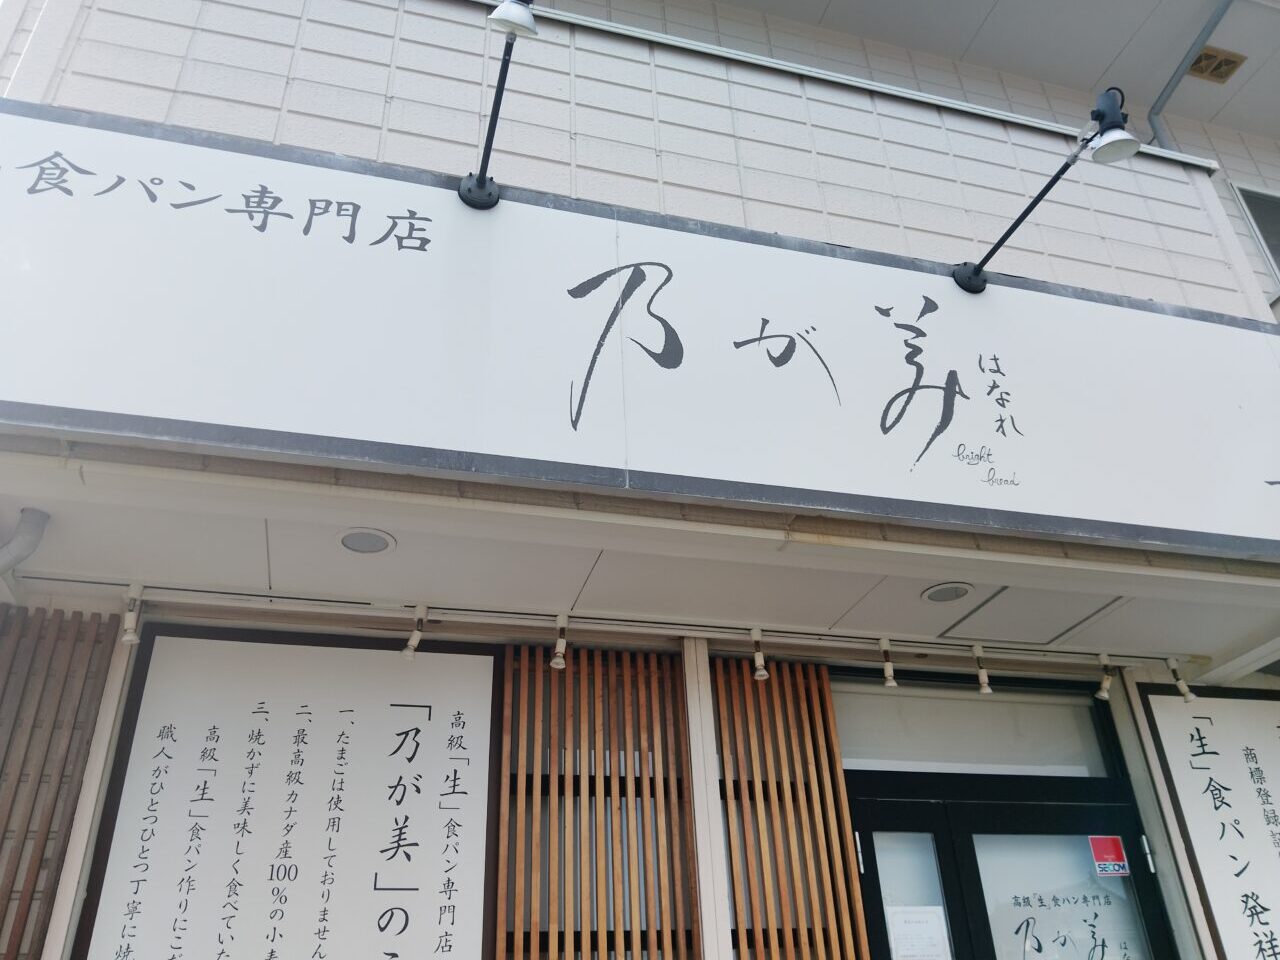 食パン専門店
乃が美
はなれ
bright
bread
高級「生」食パン専門店
「乃が美」の
一、たまごは使用しておりません
二、最高級カナダ産100%の小麦
三、焼かずに美味しく食べていた
高級「生」食パン作りにこだ
職人がひとつひとつ丁寧に焼
SECOM
高級「生」食パン専門店
乃が美
はな
商標登録
「生」食パン発祥